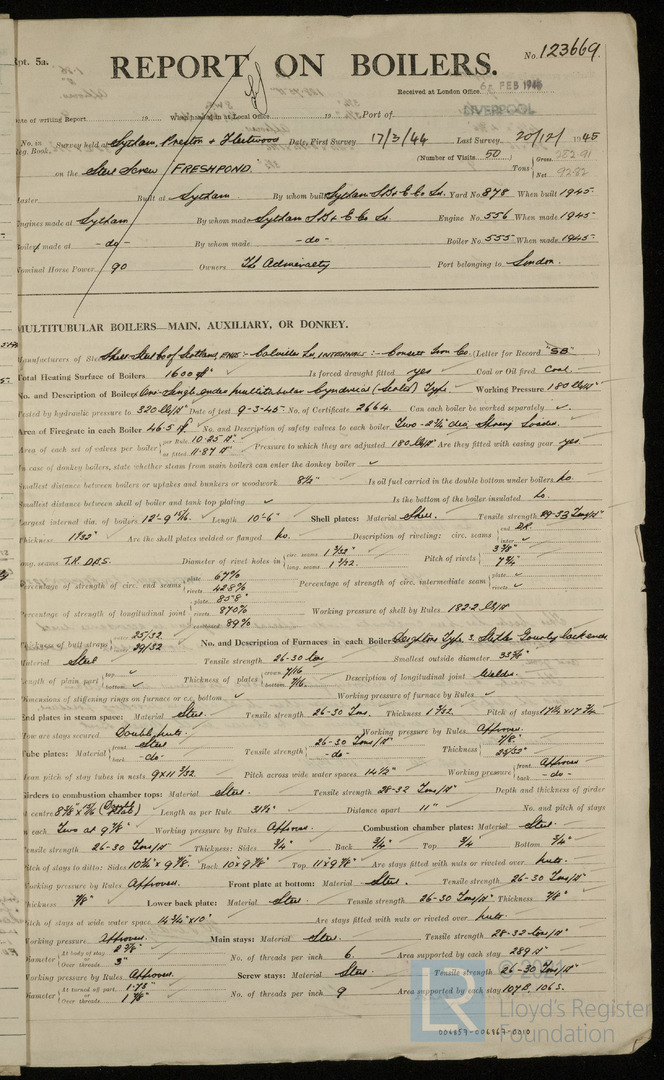 Rpt. 5a.
REPORT ON BOILERS.
No. 123669.
Received at London Office FEB 1946
LIVERPOOL
Date of writing Report 19 When handed in at Local Office 19 Port of
No. in Survey held at Lytham, Preston & Fleetwood Date, First Survey 17/3/44 Last Survey 20/12/1945
Reg. Book. (Number of Visits 50)
on the Steel Screw FRESHPOND. Tons Gross 282.91 Net 92.82
Master Built at Lytham By whom built Lytham S.B. & E. Co Ld. Yard No. 878 When built 1945
Engines made at Lytham By whom made Lytham S.B. & E. Co Ld. Engine No. 556 When made 1945
Boilers made at -do- By whom made -do- Boiler No. 555 When made 1945
Nominal Horse Power 90 Owners The Admiralty Port belonging to London.
MULTITUBULAR BOILERS—MAIN, AUXILIARY, OR DONKEY.
Manufacturers of Steel Steel Co of Scotland, ENDS :- Colvilles Ld, INTERNALS :- Consett Iron Co. (Letter for Record "SB")
Total Heating Surface of Boilers 1600 Is forced draught fitted yes Coal or Oil fired Coal.
No. and Description of Boilers One Single ended multitubular Cylindrical (Scotch) Type. Working Pressure 180 lb/□"
Tested by hydraulic pressure to 320 lb/□" Date of test 9-3-45 No. of Certificate 2664. Can each boiler be worked separately ✓.
Area of Firegrate in each Boiler 46.5 No. and Description of safety valves to each boiler Two - 2¾" dia. Spring Loaded.
Area of each set of valves per boiler per Rule 10.25 □" as fitted 11.87 □" Pressure to which they are adjusted 180 lb/□" Are they fitted with easing gear yes
In case of donkey boilers, state whether steam from main boilers can enter the donkey boiler ✓
Smallest distance between boilers or uptakes and bunkers or woodwork Is oil fuel carried in the double bottom under boilers No.
Smallest distance between shell of boiler and tank top plating ✓ Is the bottom of the boiler insulated No.
Largest internal dia. of boilers 12'-9 15/16. Length 10'-6" Shell plates: Material Steel. Tensile strength 29-33 Tons/□"
Thickness 1 1/32" Are the shell plates welded or flanged No. Description of riveting: circ. seams end D.R. inter. ✓
long. seams T.R. D.B.S. Diameter of rivet holes in circ. seams 1 3/32" long. seams 1 3/32. Pitch of rivets 3 3/8" 7 3/4"
Percentage of strength of circ. end seams plate 67% rivets 42.8% Percentage of strength of circ. intermediate seam plate ✓ rivets ✓
Percentage of strength of longitudinal joint plate 85.8 rivets 87.0% combined 89% Working pressure of shell by Rules 182.2 lb/□"
Thickness of butt straps 25/32 29/32 No. and Description of Furnaces in each Boiler Deighton Type
Material Steel Tensile strength 26-30 tons Smallest outside diameter
Length of plain part top ✓ bottom ✓ Thickness of plates crown 7/16 bottom 7/16. Description of longitudinal joint Welded.
Dimensions of stiffening rings on furnace or c.c. bottom ✓ Working pressure of furnace by Rules ✓
End plates in steam space: Material Steel. Tensile strength 26-30 Tons. Thickness 1 3/32. Pitch of stays 17¼ x 17¾
How are stays secured Double nuts. Working pressure by Rules Approved.
Tube plates: Material front Steel back -do- Tensile strength 26-30 Tons/□" -do- Thickness 7/8. 25/32"
Mean pitch of stay tubes in nests 9 x 11 7/32. Pitch across wide water spaces 14½" Working pressure front Approved back -do-
Girders to combustion chamber tops: Material Steel. Tensile strength 28-32 Tons/□" Depth and thickness of girder
at centre (Double plate) Length as per Rule 31¼" Distance apart 11" No. and pitch of stays
in each Two at 9 7/8" Working pressure by Rules Approved. Combustion chamber plates: Material Steel.
Tensile strength 26-30 Tons/□" Thickness: Sides ¾" Back ¾" Top ¾" Bottom ¾"
Pitch of stays to ditto: Sides 10¾" x 9 7/8. Back 10" x 9 7/8" Top 11" x 9 7/8" Are stays fitted with nuts or riveted over Nuts.
Working pressure by Rules Approved. Front plate at bottom: Material Steel. Tensile strength 26-30 Tons/□"
Thickness 7/8" Lower back plate: Material Steel Tensile strength 26-30 Tons/□" Thickness 7/8"
Pitch of stays at wide water space 14¾" x 10" Are stays fitted with nuts or riveted over Nuts.
Working pressure Approved. Main stays: Material Steel. Tensile strength 28-32 tons/□"
Diameter At body of stay 2 7/8" or Over threads 3" No. of threads per inch 6. Area supported by each stay 289 □"
Working pressure by Rules Approved. Screw stays: Material Steel. Tensile strength 26-30 Tons/□"
Diameter At turned off part. 1.75" or Over threads 1 7/8" No. of threads per inch 9 Area supported by each stay 107 B. 106 S.
© 2021
LR Lloyd's Register
Foundation
004859-004869-0010